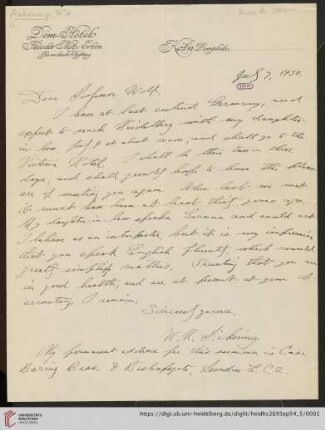 Pickering, W. H.
Dom-Hotel
Theodor Metz-Erben
Köln, Domplatz
July 7, 1930.
Dear Professor Wolf.
I have at last entered Germany, and
expect to reach Heidelberg with my daughter
in law July 9 at about noon, and shall go to the
Victoria Hotel. I shall be there two or three
days, and shall greatly hope to have the pleasure
of meeting you again. When last we met
it must have been at least thirty years ago.
My daughter in law speaks German and could act
I believe as an interpreter, but it is my impression
that you speak English fluently, which would
greatly simplify matters. Trusting that you are
in good health, and are at present at your
observatory, I remain,
Sincerely yours,
W. H. Pickering.
My permanent address for this summer is Care
Baring Bros. 8 Bishopsgate, London E.C.2.
UNIVERSITÄTS-
BIBLIOTHEK
HEIDELBERG
https://digi.ub.uni-heidelberg.de/diglit/heidhs3695ep94_5/0001